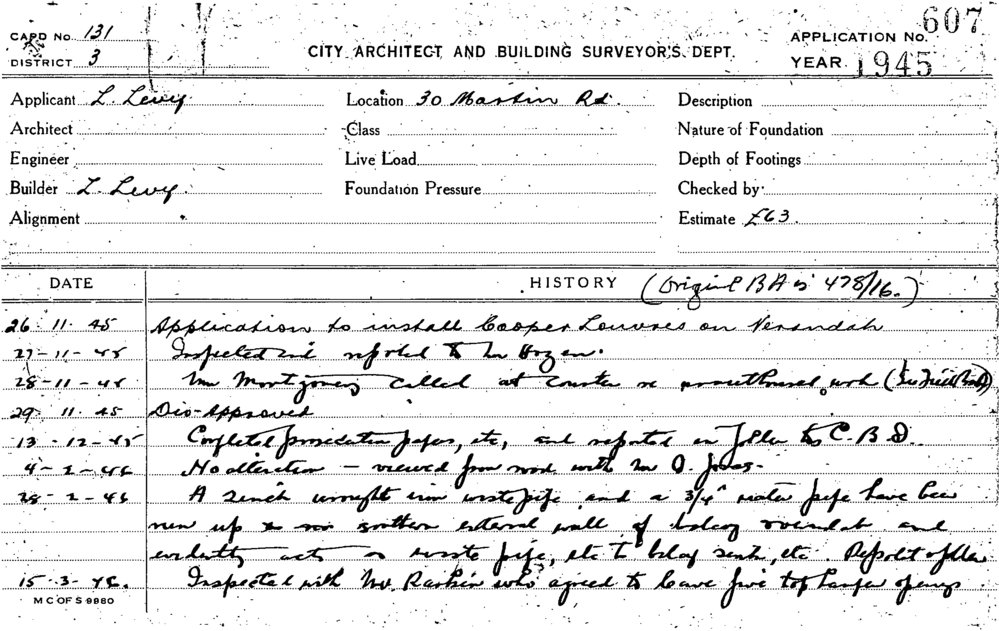 CARD No. 131
DISTRICT 3
CITY ARCHITECT AND BUILDING SURVEYOR'S DEPT.
APPLICATION No. 607
YEAR 1945
Applicant L. Levy
Location 30 Martin Rd.
Description
Architect
Class
Nature of Foundation
Engineer
Live Load
Depth of Footings
Builder L. Levy
Foundation Pressure
Checked by
Alignment
Estimate £63
DATE
HISTORY (Original BA is 478/16.)
26. 11. 45 Application to install Cooper Louvres on Verandah
27-11-45 Inspected and reported to Mr Hogan.
28-11-45 Mr Montgomery called at counter re unauthorised work
29. 11. 45 Dis-Approved
13-12-45 Completed prosecution papers, etc, and reported on folder to C.B.S.
4-2-46 No alteration — viewed from road with Mr O. Jones.
28-2-46 A 2 inch wrought iron waste pipe and a 3/4" water pipe have been
run up southern external wall of balcony verandah and
evidently acts as waste pipe, etc to balcony sink, etc. Report
15-3-46. Inspected with Mr. Rankin who agreed to leave five top hamper openings
M C OF S 9880